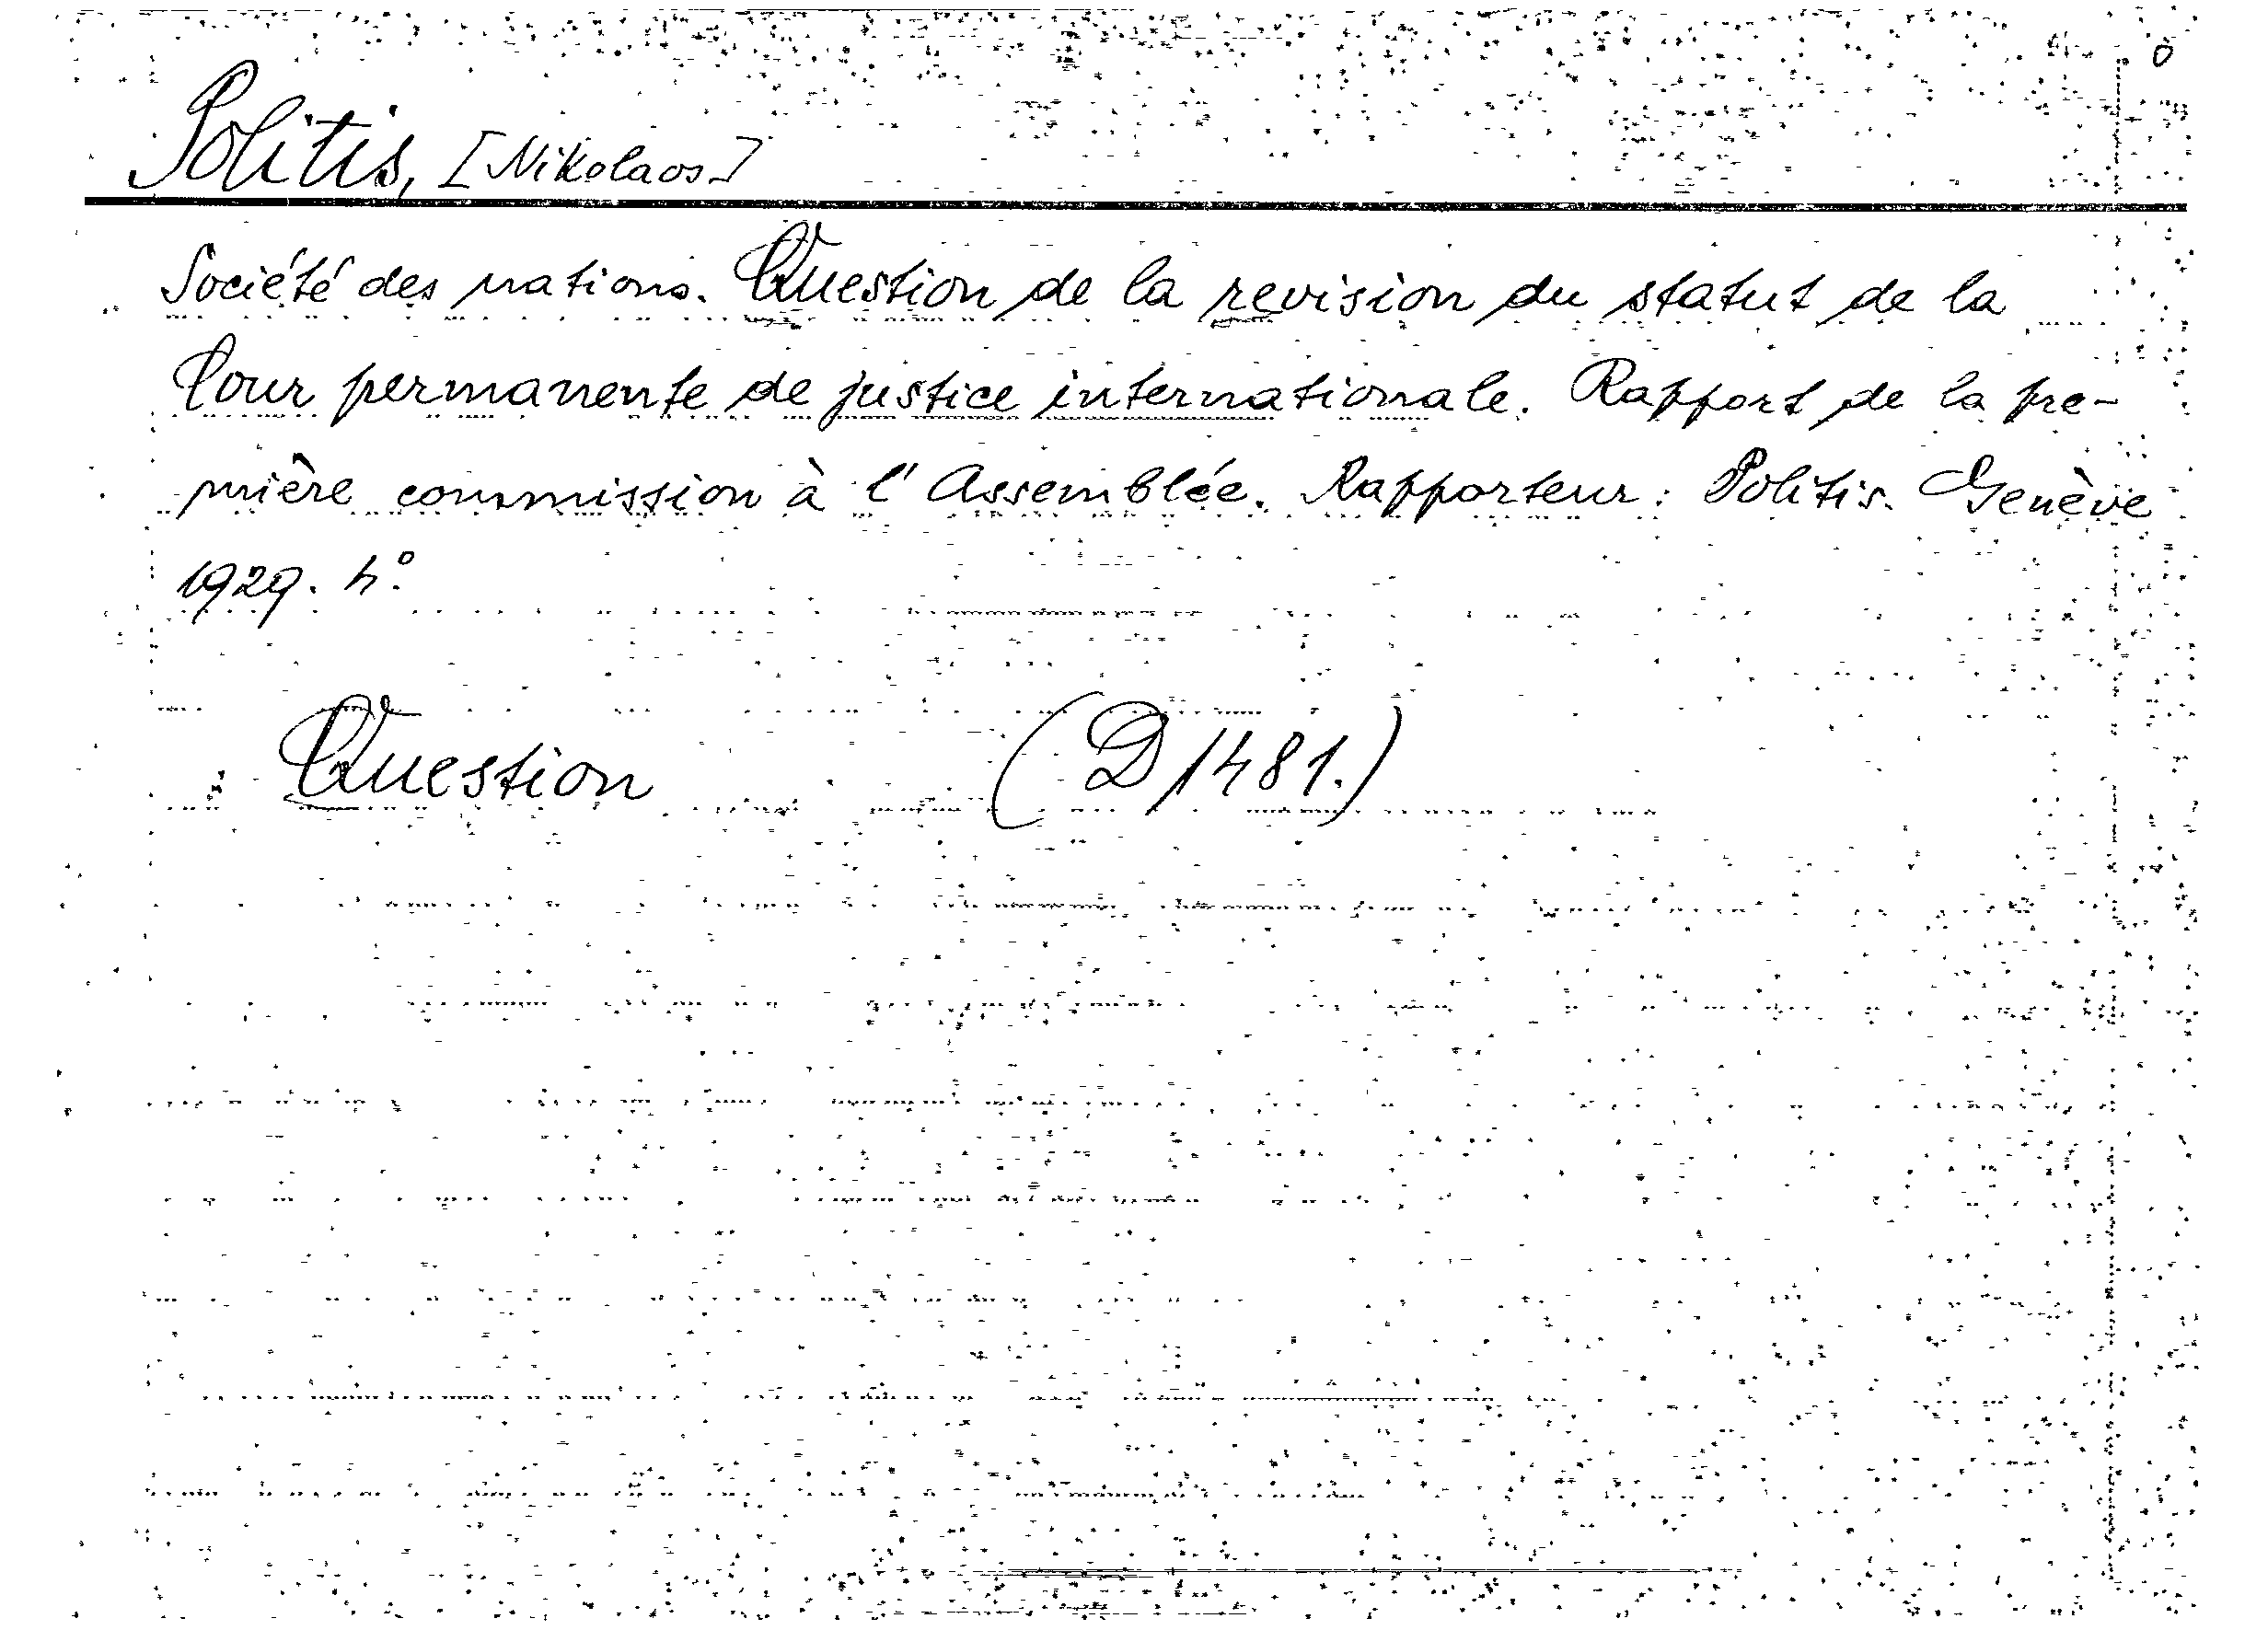 0
Politis, [Nikolaos]
Société des nations. Question de la revision du statut de la
Cour permanente de justice internationale. Rapport de la pre-
mière commission à l'Assemblée. Rapporteur: Politis. Genève
1929. 4°.
Question (D 1481.)